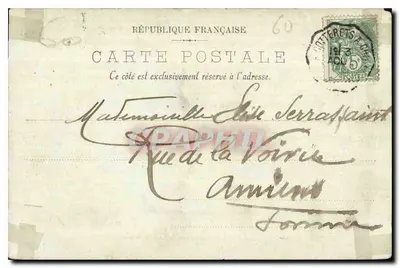 RÉPUBLIQUE FRANÇAISE
60
CARTE POSTALE
Ce côté est exclusivement réservé à l'adresse.
5
AOU
Mademoiselle Élise Serrassaint
Rue de la Voirie
Amiens
Somme